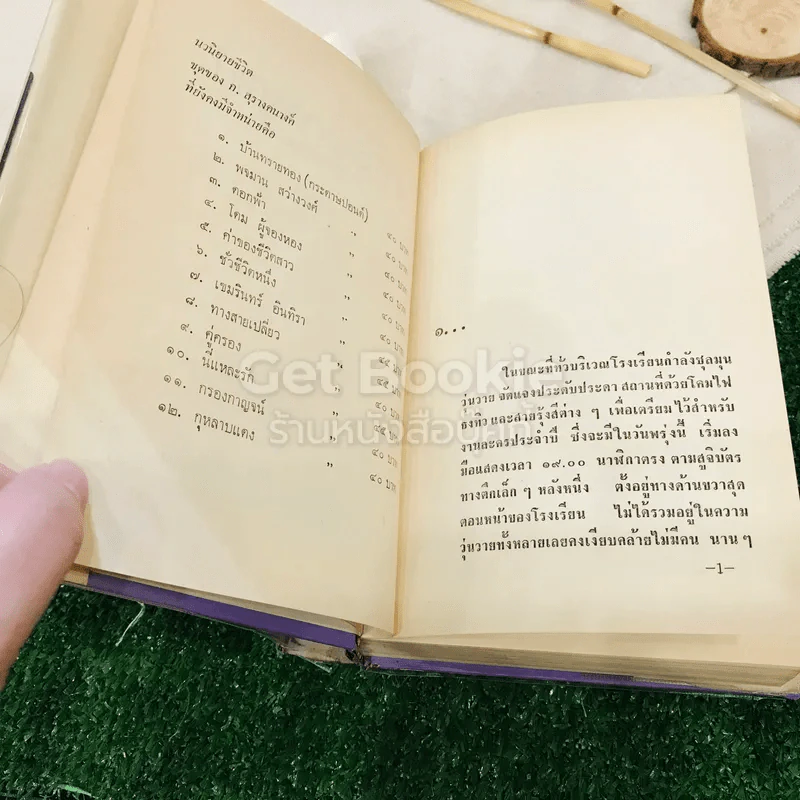 นวนิยายชีวิต
ชุดของ ก. สุรางคนางค์
ที่ยังคงมีจำหน่ายคือ
๑. บ้านทรายทอง (กระดาษปอนด์) ๔๐ บาท
๒. พจมาน สว่างวงศ์ " ๔๐ บาท
๓. ดอกฟ้า
๔. โดม ผู้จองหอง " ๔๐ บาท
๕. ค่าของชีวิตสาว " ๔๐ บาท
๖. ชั่วชีวิตหนึ่ง " ๔๐ บาท
๗. เขมรินทร์ อินทิรา " ๔๐ บาท
๘. ทางสายเปลี่ยว "
๙. คู่ครอง "
๑๐. นี่แหละรัก "
๑๑. กรองกาญจน์ " ๔๐ บาท
๑๒. กุหลาบแดง " ๔๐ บาท
๑...
ในขณะที่ทั่วบริเวณโรงเรียนกำลังชุลมุน
วุ่นวาย จัดแจงประดับประดา สถานที่ด้วยโคมไฟ
ธงทิว และสายรุ้งสีต่าง ๆ เพื่อเตรียมไว้สำหรับ
งานละครประจำปี ซึ่งจะมีในวันพรุ่งนี้ เริ่มลง
มือแสดงเวลา ๑๙.๐๐ นาฬิกาตรง ตามสูจิบัตร
ทางตึกเล็ก ๆ หลังหนึ่ง ตั้งอยู่ทางด้านขวาสุด
ตอนหน้าของโรงเรียน ไม่ได้รวมอยู่ในความ
วุ่นวายทั้งหลายเลยคงเงียบคล้ายไม่มีคน นาน ๆ
–1–
Get Bookie
ร้านหนังสือบุ๊คกี้